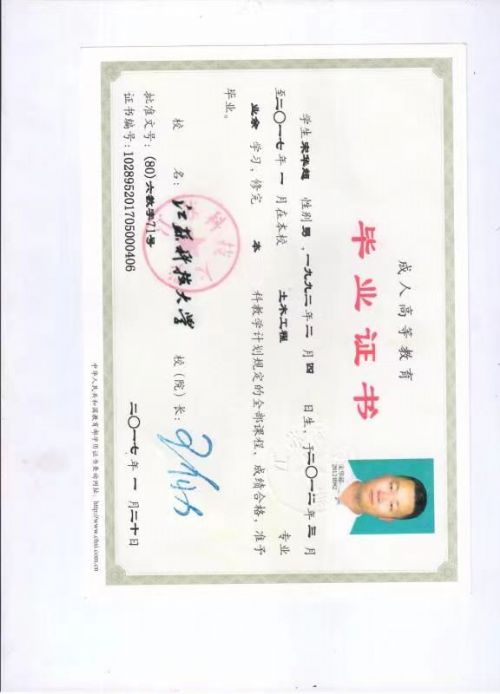 成人高等教育
毕业证书
学生 宋华超 性别 男，一九九二年 二 月 四 日生，于二〇一二年 三 月
至二〇一七年 一 月在本校 土木工程 专业
业余 学习，修完 本 科教学计划规定的全部课程，成绩合格，准予
毕业。
校 名：江苏科技大学 校（院）长：
批准文号：(80)六教字71号
证书编号：102895201705000406 二〇一七 年 一 月二十日
中华人民共和国教育部学历证书查询网址：http://www.chsi.com.cn